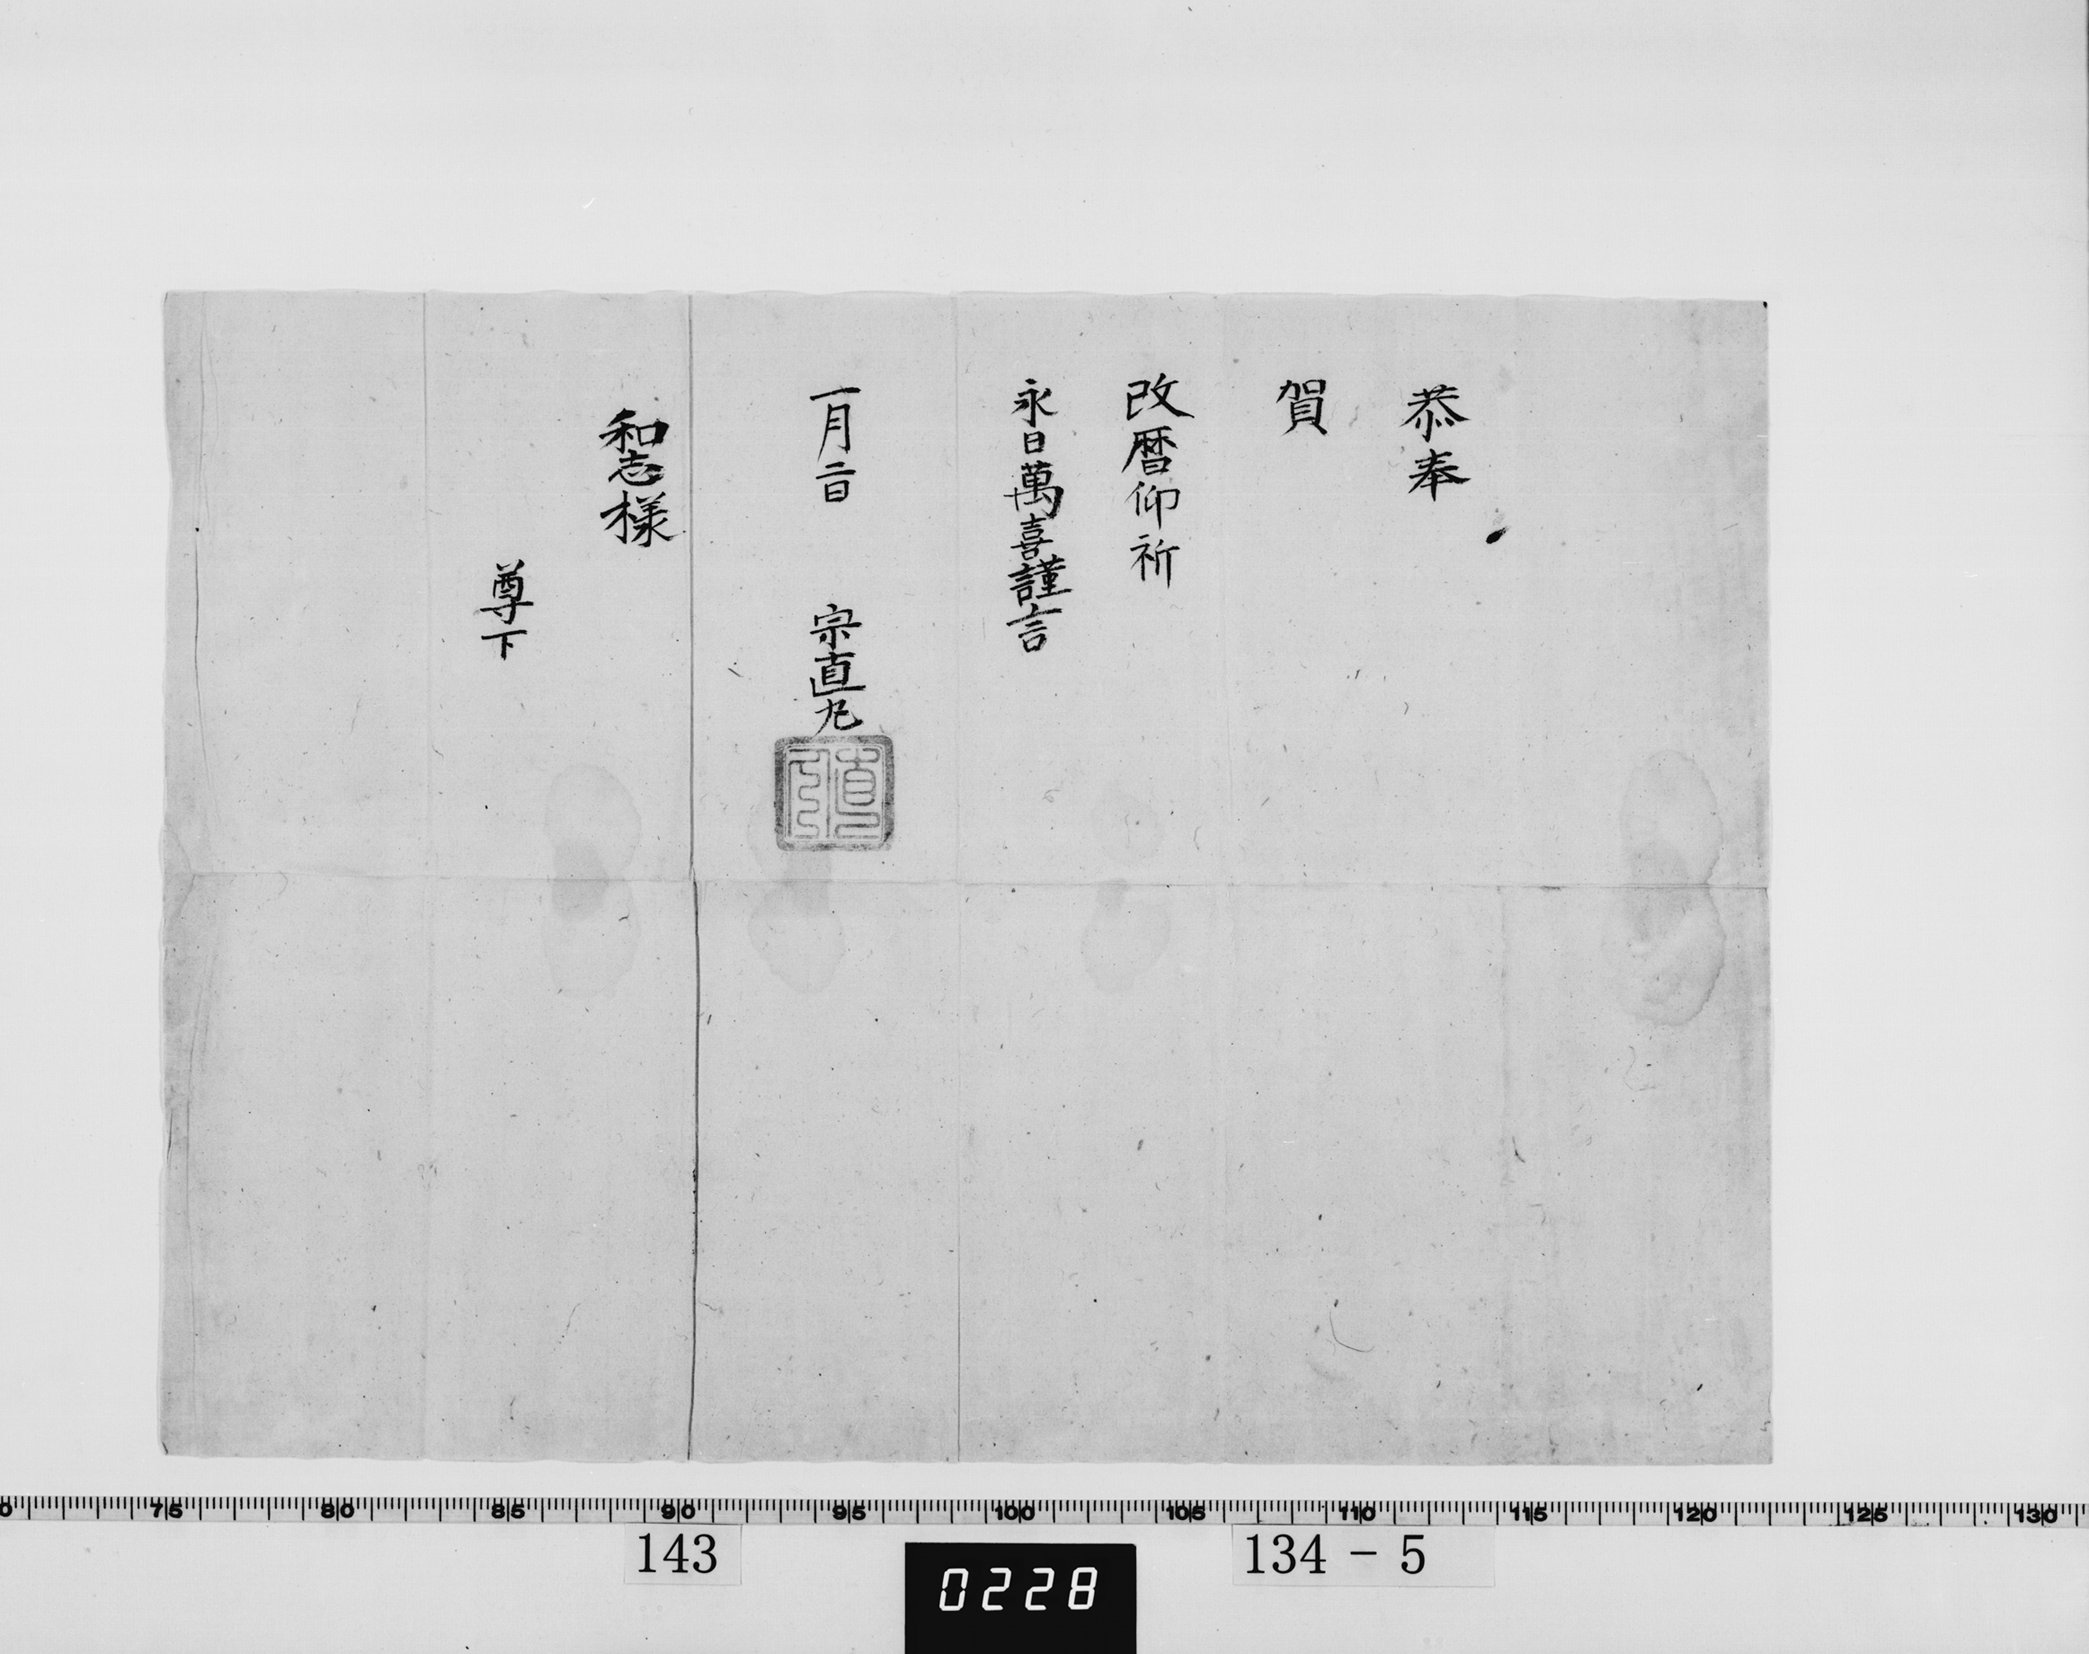 恭奉
賀
改暦仰祈
永日萬喜謹言
一月二日 宗直丸
和志様
尊下
75 80 85 90 95 100 105 110 115 120 125 130
143
134-5
0228